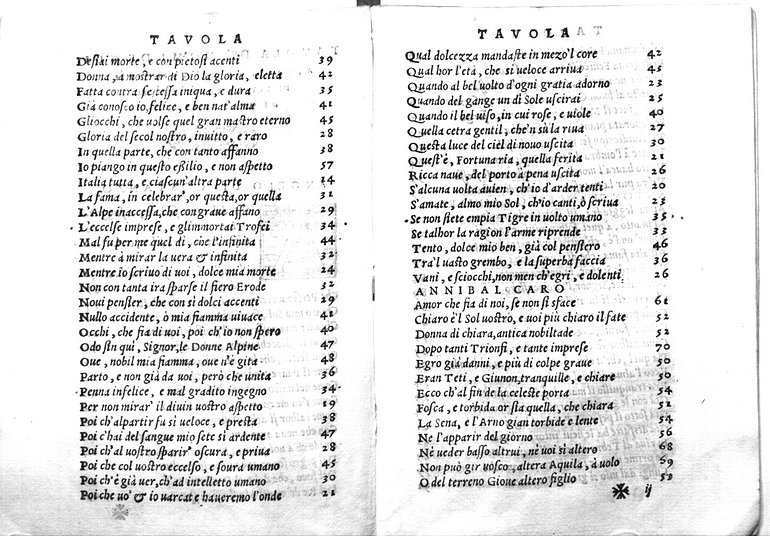 TAVOLA
Desiai morte, e con pietosi acenti 39
Donna, à mostrar di Dio la gloria, eletta 42
Fatta contra se stessa iniqua, e dura 35
Già conosco io, felice, e ben nat'alma 41
Gliocchi, che uolse quel gran mastro eterno 45
Gloria del secol nostro, inuitto, e raro 28
In quella parte, che con tanto affanno 38
Io piango in questo essilio, e non aspetto 57
Italia tutta, e ciascun'altra parte 14
La fama, in celebrar', or questa, or quella 31
L'Alpe inaccessa, che con graue affano 29
L'eccelse imprese, e glimmortai Trofei 34
Mal fu per me quel dì, che l'infinita 44
Mentre à mirar la uera & infinita 32
Mentre io scriuo di uoi, dolce mia morte 24
Non con tanta ira sparse il fiero Erode 32
Noui pensier, che con si dolci accenti 29
Nullo accidente, ò mia fiamma uiuace 41
Occhi, che fia di uoi, poi ch'io non spero 40
Odo sin qui, Signor, le Donne Alpine 47
Oue, nobil mia fiamma, oue n'è gita 48
Parto, e non già da uoi, però che unita 36
Penna infelice, e mal gradito ingegno 34
Per non mirar' il diuin uostro aspetto 19
Poi ch'al partir fu si ueloce, e presta 38
Poi c'hai del sangue mio sete si ardente 47
Poi ch'al uostro sparir' oscura, e priua 28
Poi che col uostro eccelso, e soura umano 45
Poi ch'è già uer, ch'ad intelletto umano 30
Poi che uo' & io uarcat e haueremo l'onde 21
TAVOLA
Qual dolcezza mandaste in mezo'l core 42
Qual hor l'età, che si ueloce arriua 45
Quando al bel uolto d'ogni gratia adorno 23
Quando del gange un dì Sole uscirai 25
Quando il bel uiso, in cui rose, e uiole 40
Quella cetra gentil, che'n sù la riua 27
Questa luce del ciel di nouo uscita 30
Quest'è, Fortuna ria, quella ferita 21
Ricca naue, del porto à pena uscita 26
S'alcuna uolta auien, ch'io d'arder tenti 20
S'amate, almo mio Sol, ch'io canti, ò scriua 23
Se non siete empia Tigre in uolto umano 35
Se talhor la ragion l'arme riprende 33
Tento, dolce mio ben, già col pensiero 46
Tra'l uasto grembo, e la superba faccia 36
Vani, e sciocchi, non men ch'egri, e dolenti 26
ANNIBAL CARO
Amor che fia di noi, se non si sface 61
Chiaro è l Sol uostro, e uoi più chiaro il fate 52
Donna di chiara, antica nobiltade 52
Dopo tanti Trionfi, e tante imprese 70
Egro già d'anni, e più di colpe graue 50
Eran Teti, e Giunon, tranquille, e chiare 50
Ecco ch'al fin de la celeste porta 54
Fosca, e torbida or sia quella, che chiara 51
La Sena, e l'Arno gian torbide e lente 54
Ne l'apparir del giorno 56
Nè ueder basso altrui, nè uoi si altero 68
Non può gir uosco, altera Aquila, à uolo 69
O del terreno Gioue altero figlio 53
ij